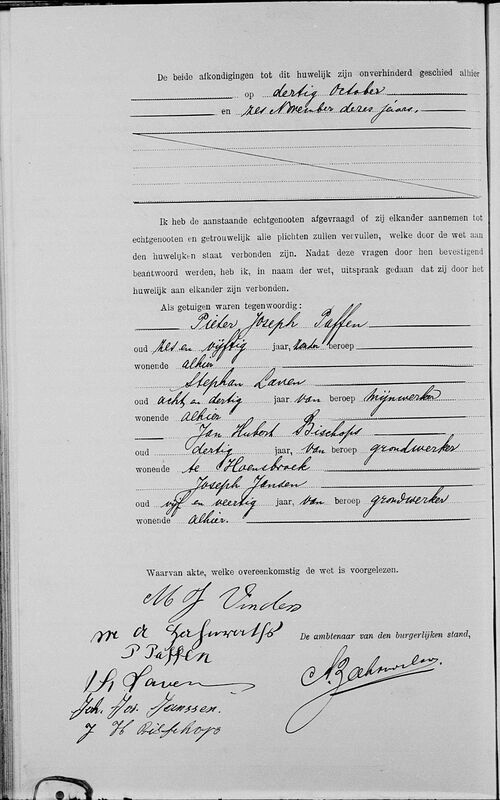 De beide afkondigingen tot dit huwelijk zijn onverhinderd geschied alhier
op dertig October
en zes November dezes jaars.
Ik heb de aanstaande echtgenooten afgevraagd of zij elkander aannemen tot
echtgenooten en getrouwelijk alle plichten zullen vervullen, welke door de wet aan
den huwelijken staat verbonden zijn. Nadat deze vragen door hen bevestigend
beantwoord werden, heb ik, in naam der wet, uitspraak gedaan dat zij door het
huwelijk aan elkander zijn verbonden.
Als getuigen waren tegenwoordig:
Pieter Joseph Paffen
oud zes en vijftig jaar, zonder beroep
wonende alhier
Stephan Laven
oud acht en dertig jaar van beroep mijnwerker
wonende alhier
Jan Hubert Bischops
oud dertig jaar, van beroep grondwerker
wonende te Hoensbroek
Joseph Jansen
oud vijf en veertig jaar, van beroep grondwerker
wonende alhier.
Waarvan akte, welke overeenkomstig de wet is voorgelezen.
M J Vinders
m a
De ambtenaar van den burgerlijken stand,
P Paffen
St Laven
Joh. Jos. Janssen.
J H Bisschops